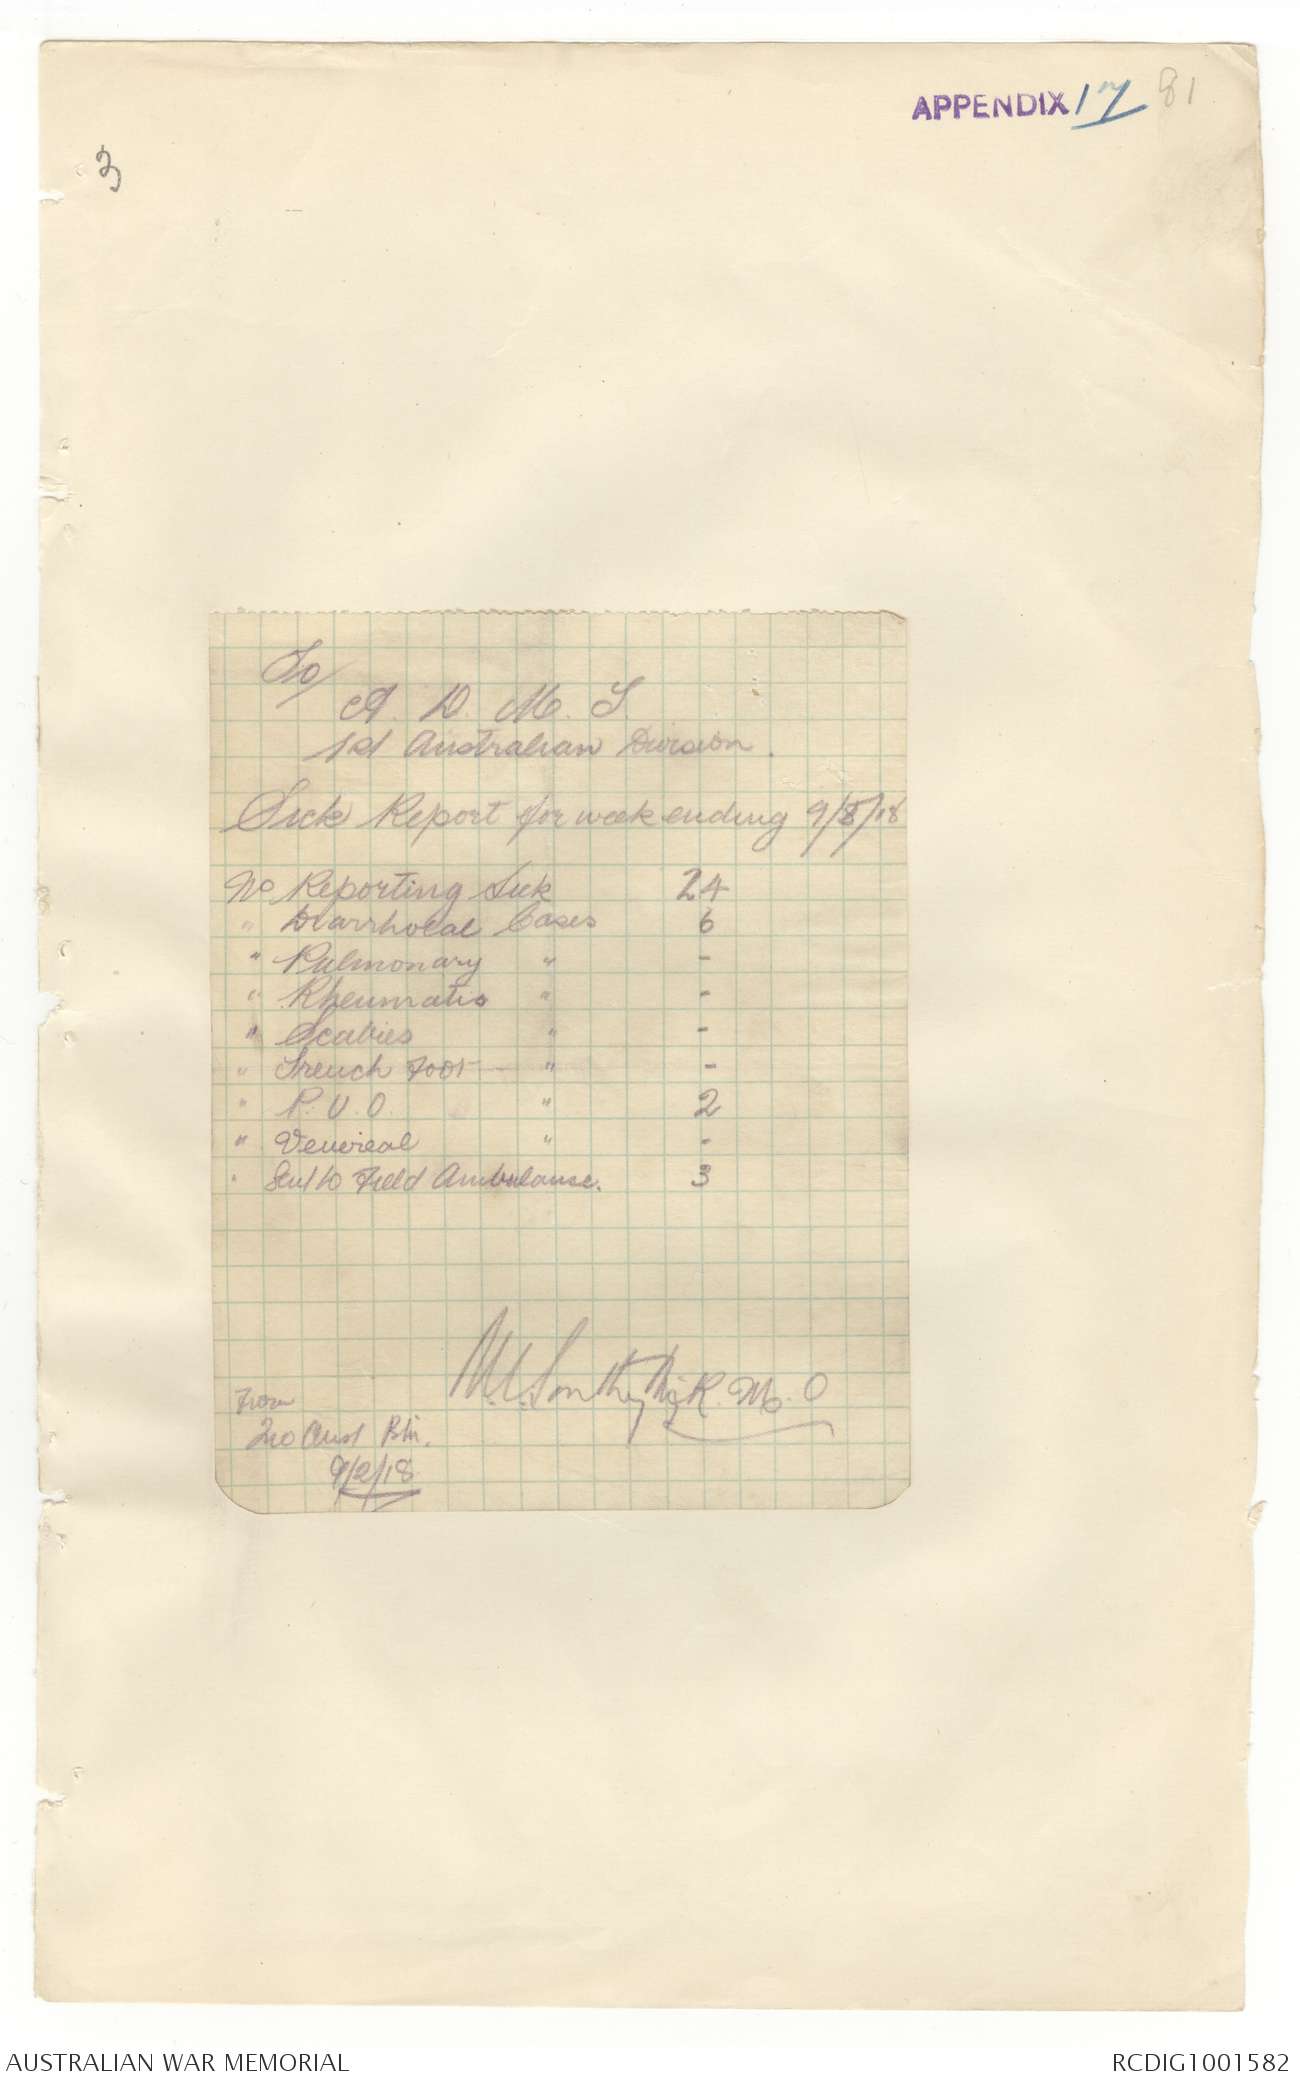 APPENDIX 17 81
3
To/
A. D. M. S
1st Australian Division.
Sick Report for week ending 9/8/18
No Reporting Sick 24
" Diarrhoeal Cases 6
" Pulmonary " -
" Rheumatic " -
" Scabies " -
" Trench Foot " -
" P. U. O. " 2
" Venereal " -
" Sent to Field Ambulance. 3
R. M. O
From
2nd Aust Btn.
9/2/18
AUSTRALIAN WAR MEMORIAL
RCDIG1001582